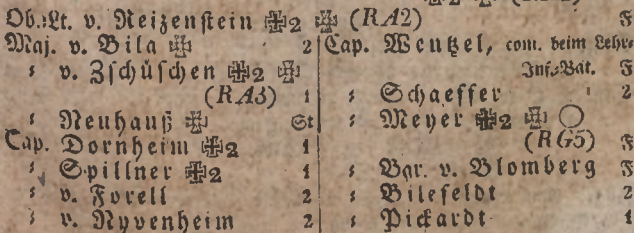 Ob.:Lt. v. Reizenstein ✠2 ✠ (RA2) F
Maj. v. Bila ✠ 2
: v. Zschüschen ✠2 ✠
(RA3) 1
: Neuhauß ✠ St
Cap. Dornheim ✠2 1
: Spillner ✠2 1
: v. Forell 2
: v. Nyvenheim 2
Cap. Wentzel, com. beim Lehr:
Inf.:Bat. F
: Schaeffer 2
: Meyer ✠2 ✠ ◯
(RG5) F
: Bar. v. Blomberg F
: Bilefeldt 2
: Pickardt 1